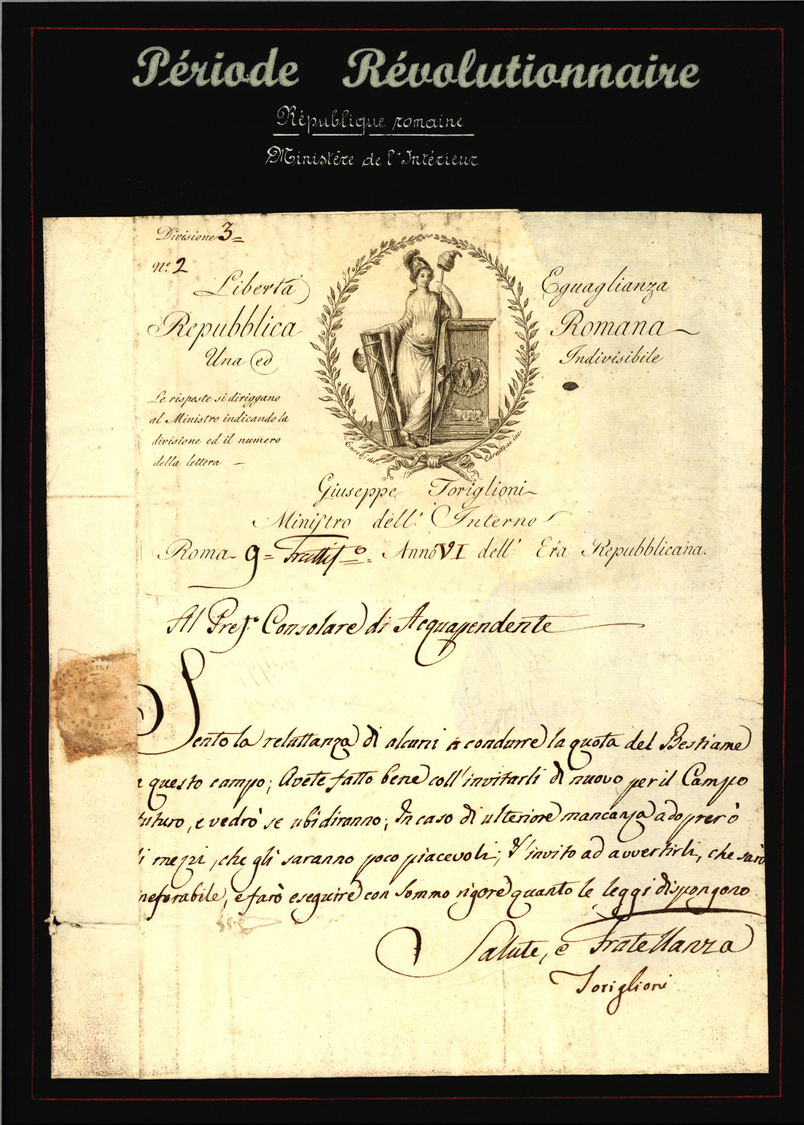 Période Révolutionnaire
République romaine
Ministère de l'Intérieur
Divisione 3=
N.º 2
Libertà Eguaglianza
Repubblica Romana
Una ed Indivisibile
Le risposte si diriggano
al Ministro indicando la
divisione ed il numero
della lettera
Giuseppe Toriglioni
Ministro dell' Interno
Roma 9= Anno VI dell' Era Repubblicana.
Al Pref. Consolare di Acquapendente
Sento la reluttanza di alcuni a condurre la quota del Bestiame
a questo campo; Avete fatto bene coll'invitarli di nuovo per il Campo
futuro, e vedrò se ubidiranno; In caso di ulteriore mancanza adoprerò
li mezzi, che gli saranno poco piacevoli; V'invito ad avvertirli, che sarò
inesorabile, e farò eseguire con sommo rigore quanto le leggi dispongono.
Salute, e Fratellanza
Toriglioni